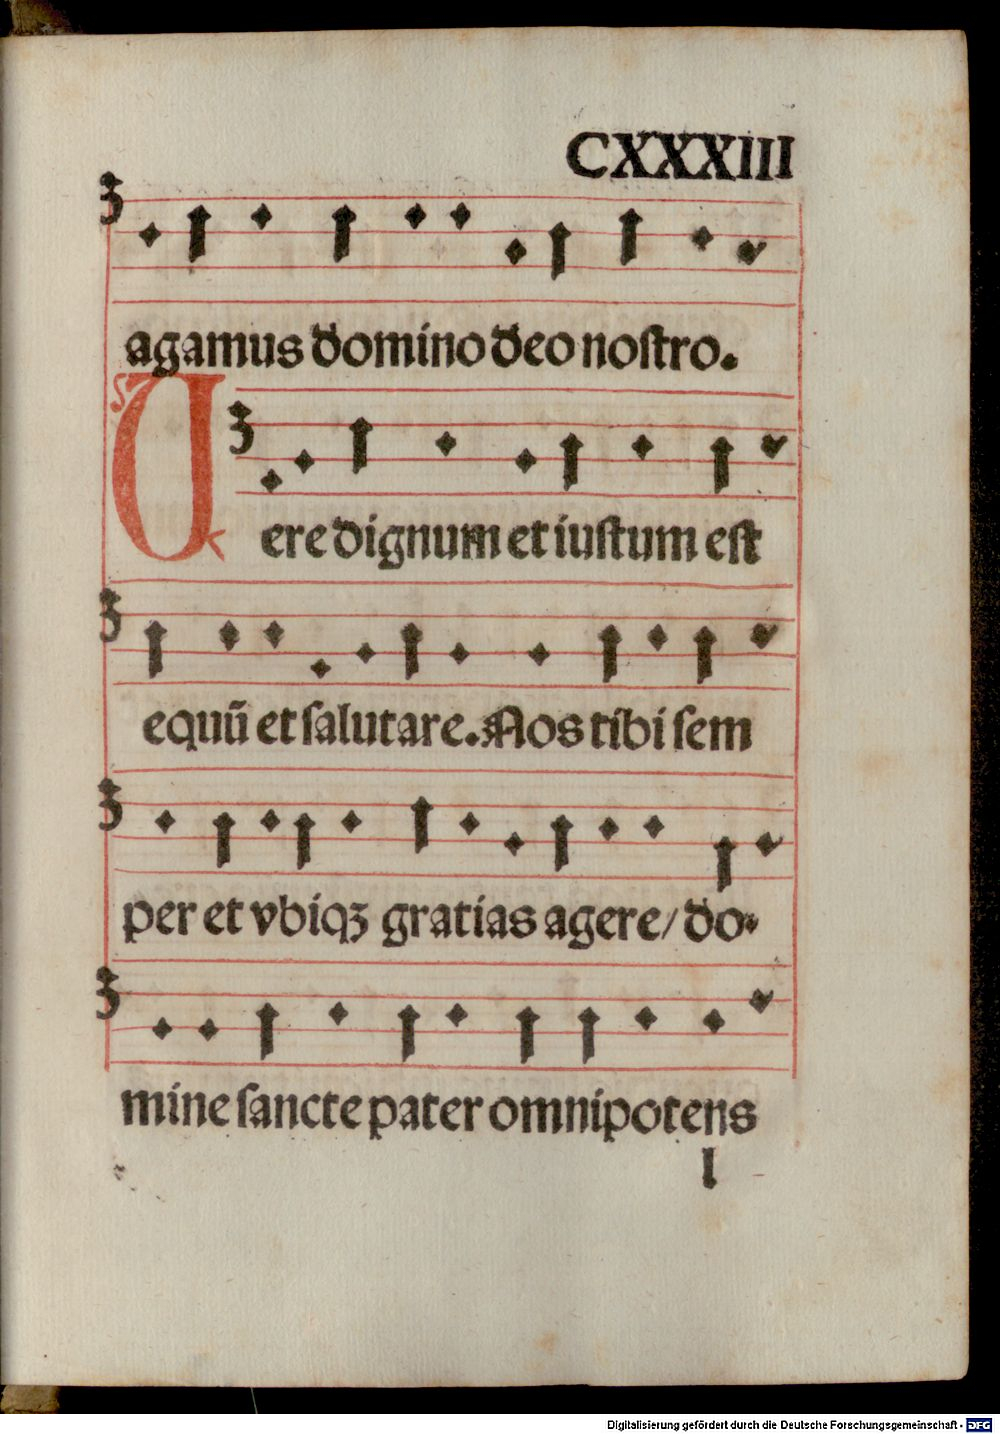 CXXXIII
agamus domino deo nostro.
Uere dignum et iustum est
equū et salutare. Nos tibi sem
per et vbiqꝫ gratias agere/do-
mine sancte pater omnipotens
l
Digitalisierung gefördert durch die Deutsche Forschungsgemeinschaft - DFG